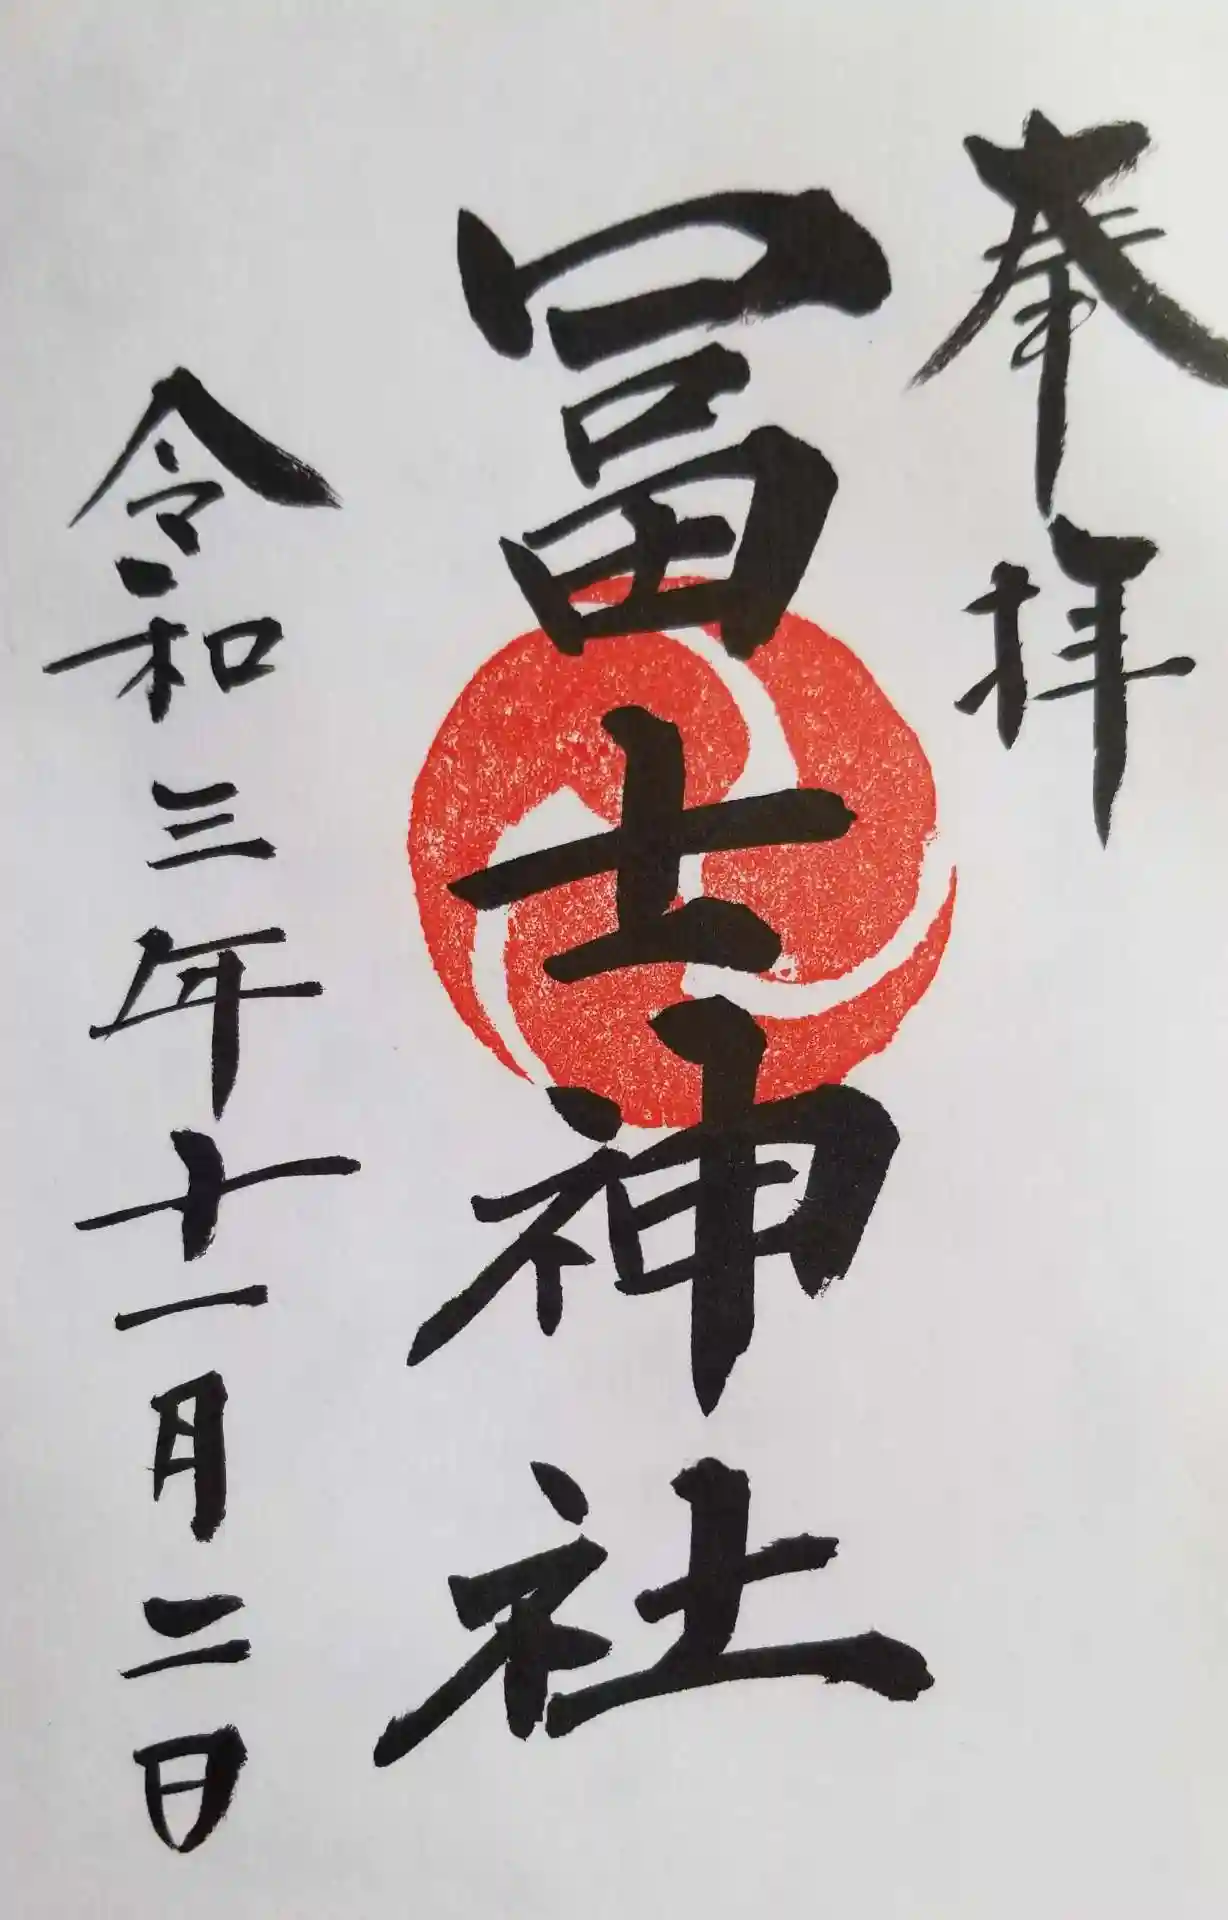 奉拝
冨士神社
令和三年十一月二日